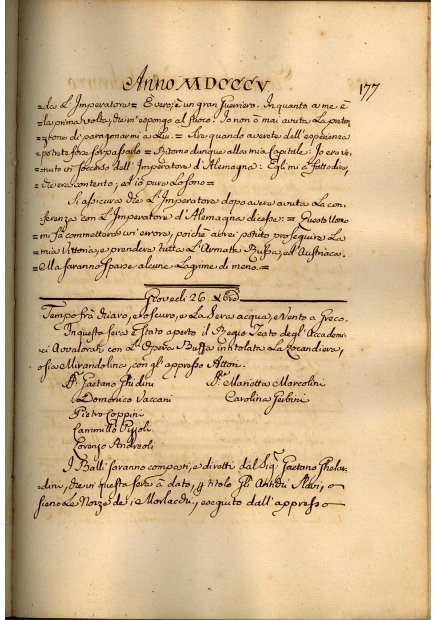 Anno MDCCCV
177
=dea L'Imperatore= È vero; è un gran Guerriero. In quanto a me è
=la prima volta, che m'espongo al fuoco: Io non ò mai avuta La preten
=zione di paragonarmi a Lui. = Sire quando averete dell'esperienza
=potrete forse sorpassarlo= Ritorno dunque alla mia Capitale: Io era ve
=nuto in soccorso dell'Imperatore d'Alemagna: Egli mi à fatto dire,
=che era contento; ed io pure Lo sono=
Si assicura che L'Imperatore dopo avere avuta La con
=ferenza con L'Imperatore d'Alemagna dicesse: = Quest'Uomo
mi fà commettere un errore, poichè avrei potuto proseguire La
=mia Vittoria, e prendere tutta L'Armata Russa, ed Austriaca.
=Ma saranno sparse alcune Lagrime di meno.=
Giovedì 26. Xbre
Tempo frà chiaro, e oscuro, e La sera acqua, e Vento a Greco.
In questa sera è stato aperto il Regio Teatro degl'Accademi
=ci Avvalorati con L'Opera Buffa intitolata La Locandiera,
o sia Mirandolina, con gl'appresso Attori.
Sig. Gaetano Ghidini Sig. Marietta Marcolini
Domenico Vaccani Carolina Gerbini
Pietro Coppini
Cammillo
Lorenzo Andreoli
I Balli saranno composti, e diretti dal Sig. Gaetano Ghelar
=dini, che in questa sera à dato, p titolo Gli Antichi Slavi, o
sieno Le Nozze de' Morlacchi, eseguito dall'appresso